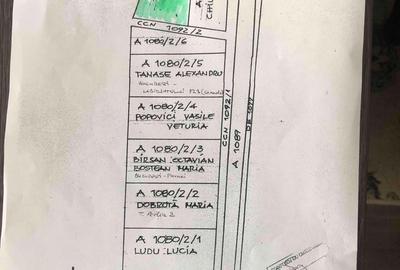 CHIL
CCN 1092/2
A 1080/2/6
A 1080/2/5
TANASE ALEXANDRU
A 1080/2/4
POPOVICI VASILE
VETURIA
A 1080/2/3
BÎRSAN OCTAVIAN
BOSTEAN MARIA
A 1080/2/2
DOBROTĂ MARIA
A 1080/2/1
LUDU LUCIA
CCN 1092/1
A 1089